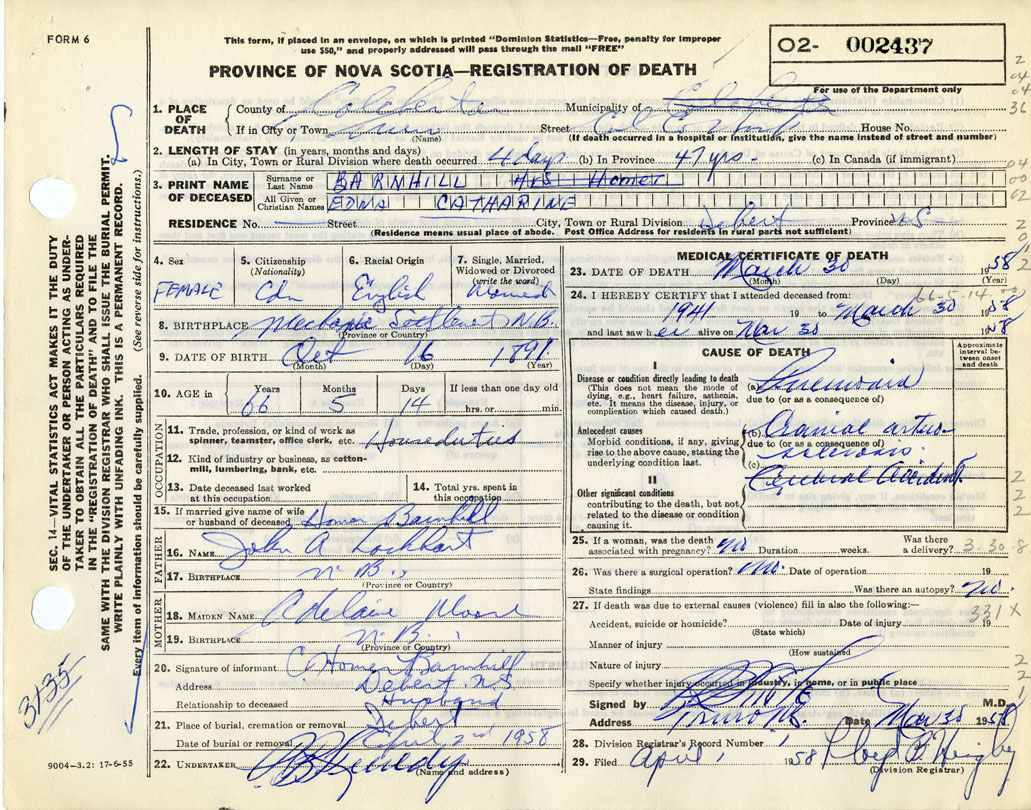 FORM 6
This form, if placed in an envelope, on which is printed "Dominion Statistics—Free, penalty for improper
use $50," and properly addressed will pass through the mail "FREE"
02- 002437
For use of the Department only
PROVINCE OF NOVA SCOTIA—REGISTRATION OF DEATH
1. PLACE OF DEATH
County of Colchester Municipality of Colchester
If in City or Town Truro Street Col Co Hosp House No.
(Name) (If death occurred in a hospital or institution, give the name instead of street and number)
2. LENGTH OF STAY (in years, months and days)
(a) In City, Town or Rural Division where death occurred 4 days (b) In Province 47 yrs - (c) In Canada (if immigrant)
3. PRINT NAME OF DECEASED
Surname or Last Name BARNHILL Mrs Homer
All Given or Christian Names EDNA CATHARINE
RESIDENCE No. Street City, Town or Rural Division Debert Province NS
(Residence means usual place of abode. Post Office Address for residents in rural parts not sufficient)
4. Sex
FEMALE
5. Citizenship
(Nationality)
Cdn
6. Racial Origin
English
7. Single, Married,
Widowed or Divorced
(write the word)
8. BIRTHPLACE Mechanic Settlement N.B.
(Province or Country)
9. DATE OF BIRTH Oct 16 1891
(Month) (Day) (Year)
10. AGE in
Years Months Days If less than one day old
66 5 14 hrs. or min.
OCCUPATION
11. Trade, profession, or kind of work as
spinner, teamster, office clerk, etc. Houseduties
12. Kind of industry or business, as cotton-
mill, lumbering, bank, etc.
13. Date deceased last worked
at this occupation
14. Total yrs. spent in
this occupation
15. If married give name of wife
or husband of deceased Homer Barnhill
FATHER
16. NAME John A Lockhart
17. BIRTHPLACE N.B.
(Province or Country)
MOTHER
18. MAIDEN NAME Adelaie Moore
19. BIRTHPLACE N.B.
(Province or Country)
20. Signature of informant C Homer Barnhill
Address Debert N.S
Relationship to deceased Husband
21. Place of burial, cremation or removal Debert
Date of burial or removal April 2nd 1958
22. UNDERTAKER
(Name and address)
MEDICAL CERTIFICATE OF DEATH
23. DATE OF DEATH March 30 1958
(Month) (Day) (Year)
66-5-14
24. I HEREBY CERTIFY that I attended deceased from:
1941 19 to March 30 1958
and last saw her alive on Mar 30 1958
CAUSE OF DEATH
Approximate
interval be-
tween onset
and death
I
Disease or condition directly leading to death
(This does not mean the mode of
dying, e.g., heart failure, asthenia,
etc. It means the disease, injury, or
complication which caused death.)
(a)
due to (or as a consequence of)
Antecedent causes
Morbid conditions, if any, giving
rise to the above cause, stating the
underlying condition last.
(b) Cranial arterio-
due to (or as a consequence of)
sclerosis
(c)
Cerebral Accident
II
Other significant conditions
contributing to the death, but not
related to the disease or condition
causing it.
25. If a woman, was the death
associated with pregnancy? No Duration weeks. Was there
a delivery? 3-30-8
26. Was there a surgical operation? No. Date of operation 19
State findings Was there an autopsy? No.
27. If death was due to external causes (violence) fill in also the following:— 331 X
Accident, suicide or homicide? Date of injury 19
(State which)
Manner of injury
(How sustained
Nature of injury
Specify whether injury occurred in industry, in home, or in public place
Signed by M.D.
Address Truro NS. Date Mar 30 1958
28. Division Registrar's Record Number 1
29. Filed April 1 1958
(Division Registrar)
SEC. 14—VITAL STATISTICS ACT MAKES IT THE DUTY
OF THE UNDERTAKER OR PERSON ACTING AS UNDER-
TAKER TO OBTAIN ALL THE PARTICULARS REQUIRED
IN THE "REGISTRATION OF DEATH" AND TO FILE THE
SAME WITH THE DIVISION REGISTRAR WHO SHALL ISSUE THE BURIAL PERMIT.
WRITE PLAINLY WITH UNFADING INK. THIS IS A PERMANENT RECORD.
Every item of information should be carefully supplied. (See reverse side for instructions.)
3135
9004-3.2: 17-6-55